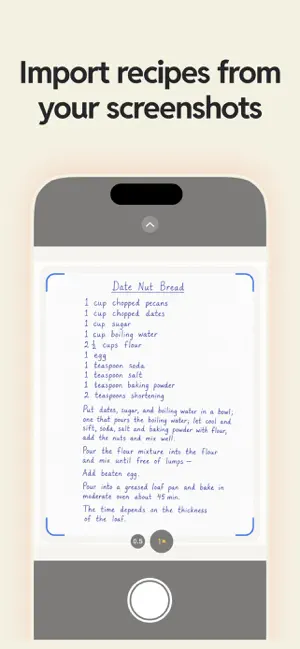 Import recipes from
your screenshots
Date Nut Bread
1 cup chopped pecans
1 cup chopped dates
1 cup sugar
1 cup boiling water
2 1/2 cups flour
1 egg
1 teaspoon soda
1 teaspoon salt
1 teaspoon baking powder
2 teaspoons shortening
Put dates, sugar, and boiling water in a bowl;
one that pours the boiling water; let cool and
sift, soda, salt and baking powder with flour,
add the nuts and mix well.
Pour the flour mixture into the flour
and mix until free of lumps—
Add beaten egg.
Pour into a greased loaf pan and bake in
moderate oven about 45 min.
The time depends on the thickness
of the loaf.
0.5
1×